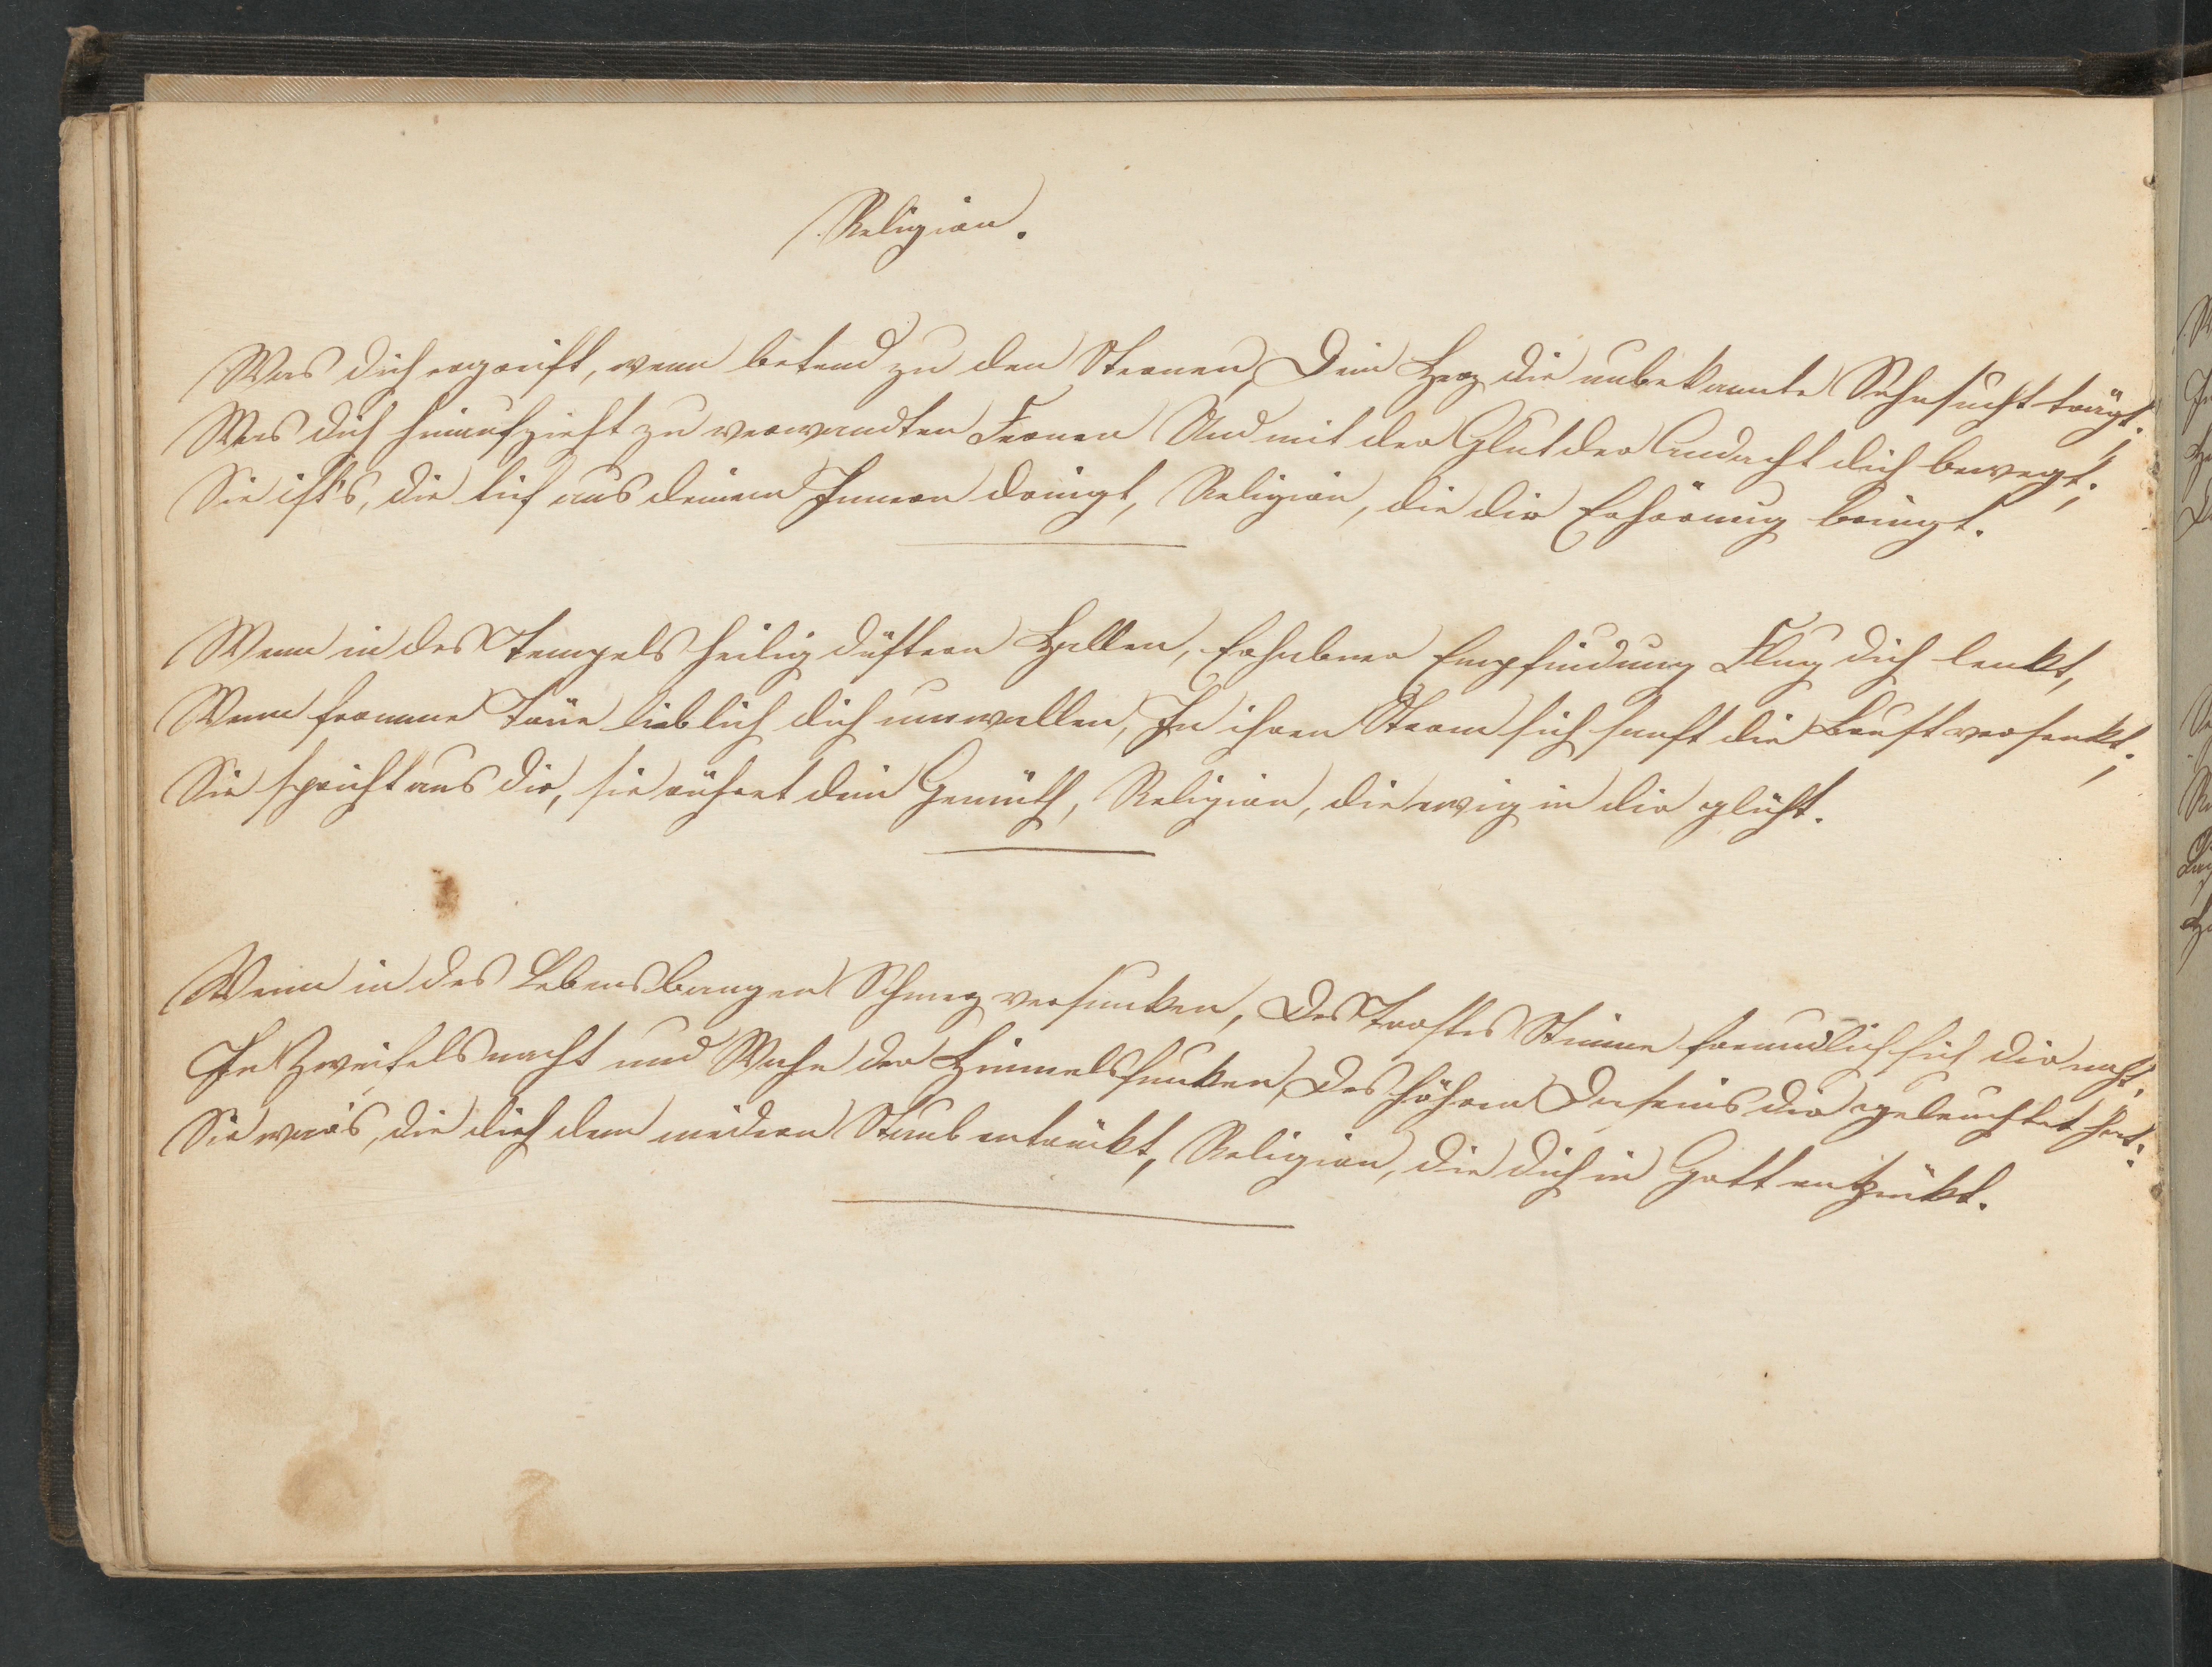 Religion.
Was dich ergreift, wenn betend zu den Sternen, Dein Herz die unbekannte Sehnsucht trägt;
Was dich hinaufzieht zu verwandten Fernen Und mit der Glut der Andacht dich bewegt;
Sie ist's, die tief aus deinem Innern dringt, Religion, die dir Erhörung bringt.
Wenn in des Tempels heilig düstern Hallen, Erhabner Empfindung Flug dich lenkt,
Wenn fromme Töne lieblich dich umwallen, In ihren Strom sich sanft die Brust versenkt;
Sie spricht aus dir, sie rühret dein Gemüth, Religion, die ewig in dir glüht.
Wenn in des Lebens bangen Schmerz versunken, Des Trostes Stimme freundlich sich dir naht,
In Zweifelsnacht und Wahn der Himmelsfunken, Des höhren Daseins dir geleuchtet hat:
Sie war's, die dich dem niedern Staub entrückt, Religion, die dich in Gott entzückt.